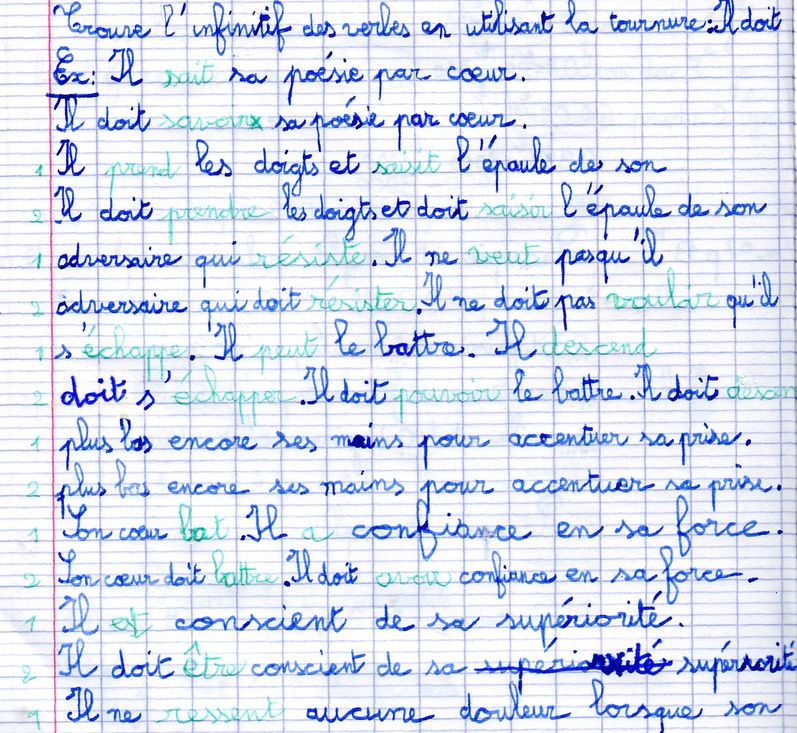 Trouve l'infinitif des verbes en utilisant la tournure: Il doit
Ex: Il sait sa poésie par cœur.
Il doit savoir sa poésie par cœur.
1 Il prend les doigts et saisit l'épaule de son
2 Il doit prendre les doigts et doit saisir l'épaule de son
1 adversaire qui résiste. Il ne veut pas qu'il
2 adversaire qui doit résister. Il ne doit pas vouloir qu'il
1 s'échappe. Il peut le battre. Il descend
2 doit s'échapper. Il doit pouvoir le battre. Il doit descen
1 plus bas encore ses mains pour accentuer sa prise.
2 plus bas encore ses mains pour accentuer sa prise.
1 Son cœur bat. Il a confiance en sa force.
2 Son cœur doit battre. Il doit avoir confiance en sa force.
1 Il est conscient de sa supériorité.
2 Il doit être conscient de sa supériorité supériorité
1 Il ne ressent aucune douleur lorsque son